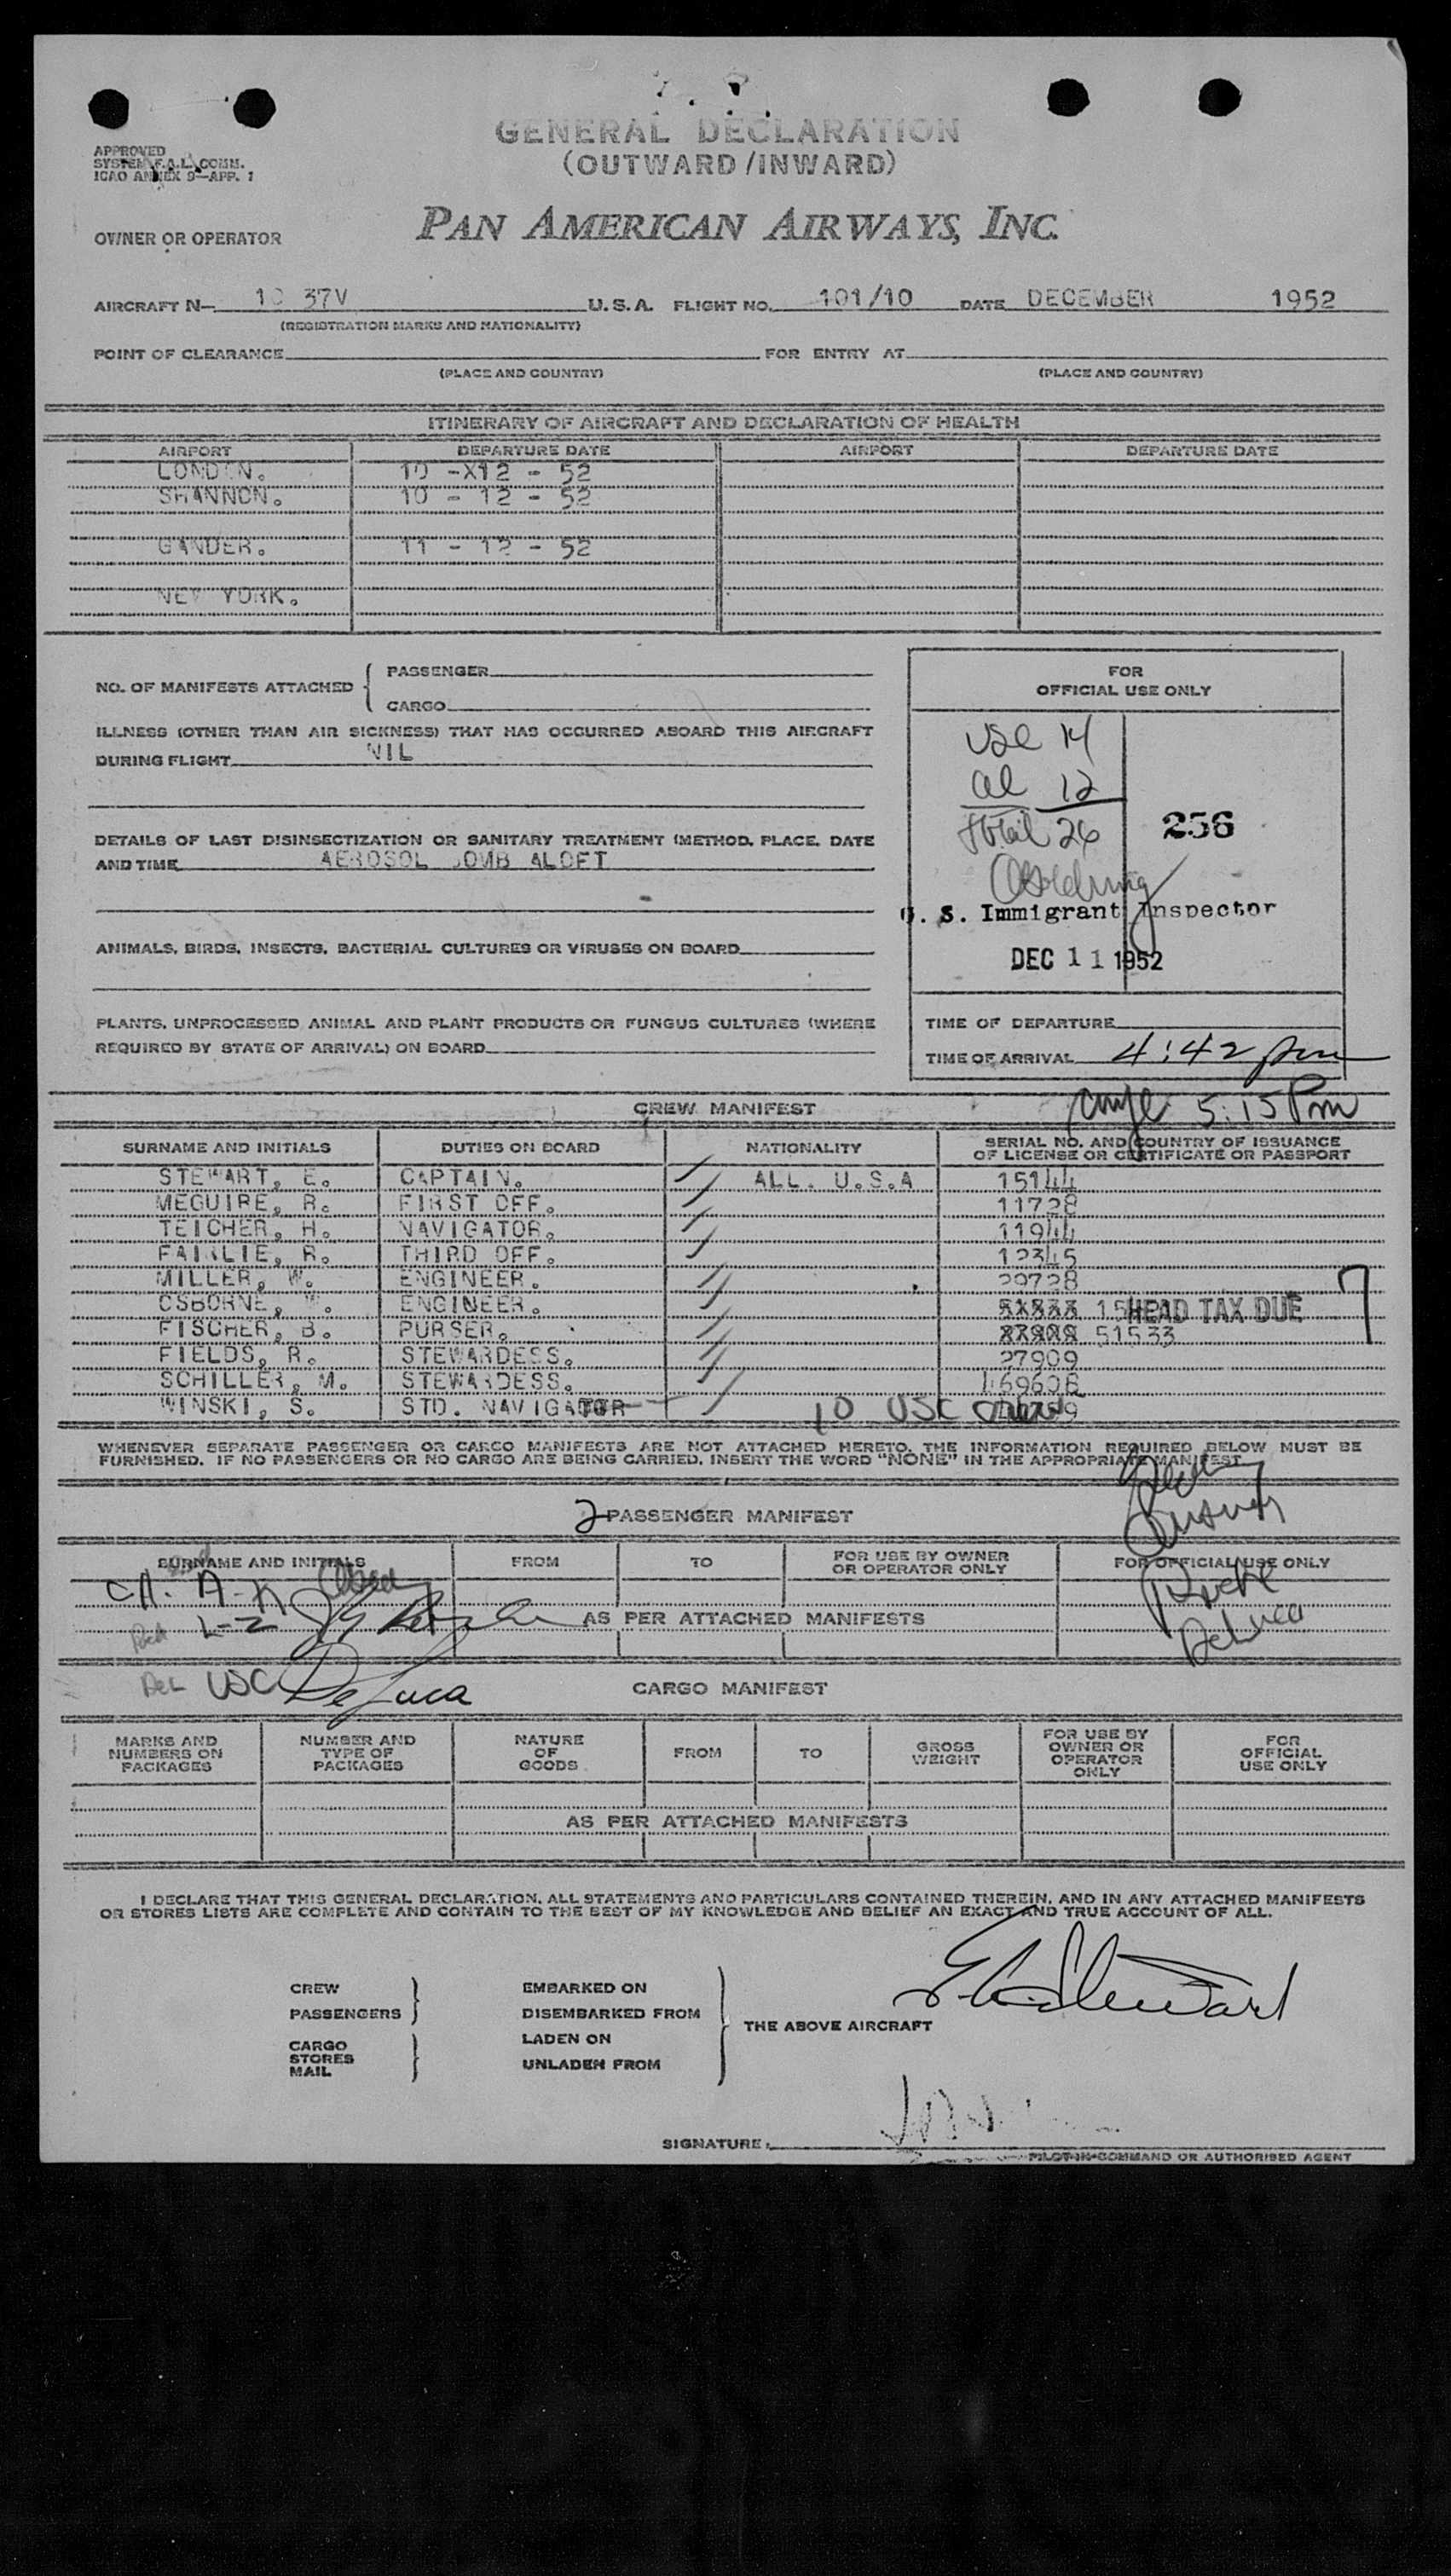 GENERAL DECLARATION
(OUTWARD/INWARD)
APPROVED
SYSTEM F.A.L. COMM.
ICAO ANNEX 9—APP. 1
OWNER OR OPERATOR PAN AMERICAN AIRWAYS, INC.
AIRCRAFT N— 10 37V U.S.A. FLIGHT NO. 101/10 DATE DECEMBER 1952
(REGISTRATION MARKS AND NATIONALITY)
POINT OF CLEARANCE FOR ENTRY AT
(PLACE AND COUNTRY) (PLACE AND COUNTRY)
ITINERARY OF AIRCRAFT AND DECLARATION OF HEALTH
AIRPORT DEPARTURE DATE AIRPORT DEPARTURE DATE
LONDON. 10 -X12 - 52
SHANNON. 10 - 12 - 52
GANDER. 11 - 12 - 52
NEW YORK.
NO. OF MANIFESTS ATTACHED { PASSENGER
CARGO
ILLNESS (OTHER THAN AIR SICKNESS) THAT HAS OCCURRED ABOARD THIS AIRCRAFT
DURING FLIGHT NIL
DETAILS OF LAST DISINSECTIZATION OR SANITARY TREATMENT (METHOD, PLACE, DATE
AND TIME AEROSOL BOMB ALOFT
ANIMALS, BIRDS, INSECTS, BACTERIAL CULTURES OR VIRUSES ON BOARD
PLANTS, UNPROCESSED ANIMAL AND PLANT PRODUCTS OR FUNGUS CULTURES (WHERE
REQUIRED BY STATE OF ARRIVAL) ON BOARD
FOR
OFFICIAL USE ONLY
USC 14
al 12
Total 26
256
U. S. Immigrant Inspector
DEC 11 1952
TIME OF DEPARTURE
TIME OF ARRIVAL 4:42 pm
5:15 Pm
CREW MANIFEST
SURNAME AND INITIALS DUTIES ON BOARD NATIONALITY SERIAL NO. AND COUNTRY OF ISSUANCE
OF LICENSE OR CERTIFICATE OR PASSPORT
STEWART, E. CAPTAIN. ALL. U.S.A 15144
MEGUIRE, R. FIRST OFF. 11728
TEICHER, H. NAVIGATOR. 11944
FAIRLIE, R. THIRD OFF. 12345
MILLER, W. ENGINEER. 29728
OSBORNE, W. ENGINEER. HEAD TAX DUE
FISCHER, B. PURSER. 51533
FIELDS, R. STEWARDESS. 27909
SCHILLER, M. STEWARDESS.
WINSKI, S. STD. NAVIGATOR 10 USC
WHENEVER SEPARATE PASSENGER OR CARGO MANIFESTS ARE NOT ATTACHED HERETO, THE INFORMATION REQUIRED BELOW MUST BE
FURNISHED. IF NO PASSENGERS OR NO CARGO ARE BEING CARRIED, INSERT THE WORD "NONE" IN THE APPROPRIATE MANIFEST
2 PASSENGER MANIFEST
SURNAME AND INITIALS FROM TO FOR USE BY OWNER
OR OPERATOR ONLY FOR OFFICIAL USE ONLY
A-K
L-Z AS PER ATTACHED MANIFESTS
DeLuca
USC DeLuca
CARGO MANIFEST
MARKS AND
NUMBERS ON
PACKAGES NUMBER AND
TYPE OF
PACKAGES NATURE
OF
GOODS FROM TO GROSS
WEIGHT FOR USE BY
OWNER OR
OPERATOR
ONLY FOR
OFFICIAL
USE ONLY
AS PER ATTACHED MANIFESTS
I DECLARE THAT THIS GENERAL DECLARATION, ALL STATEMENTS AND PARTICULARS CONTAINED THEREIN, AND IN ANY ATTACHED MANIFESTS
OR STORES LISTS ARE COMPLETE AND CONTAIN TO THE BEST OF MY KNOWLEDGE AND BELIEF AN EXACT AND TRUE ACCOUNT OF ALL.
E. Stewart
CREW EMBARKED ON
PASSENGERS DISEMBARKED FROM
THE ABOVE AIRCRAFT
CARGO LADEN ON
STORES
MAIL UNLADEN FROM
SIGNATURE:
PILOT-IN-COMMAND OR AUTHORISED AGENT